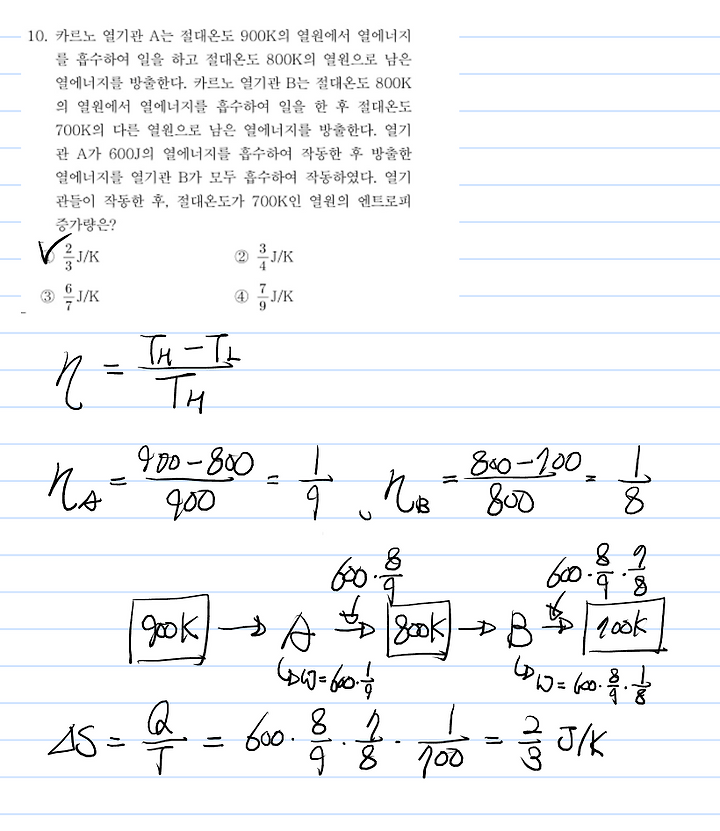 10. 카르노 열기관 A는 절대온도 900K의 열원에서 열에너지
를 흡수하여 일을 하고 절대온도 800K의 열원으로 남은
열에너지를 방출한다. 카르노 열기관 B는 절대온도 800K
의 열원에서 열에너지를 흡수하여 일을 한 후 절대온도
700K의 다른 열원으로 남은 열에너지를 방출한다. 열기
관 A가 600J의 열에너지를 흡수하여 작동한 후 방출한
열에너지를 열기관 B가 모두 흡수하여 작동하였다. 열기
관들이 작동한 후, 절대온도가 700K인 열원의 엔트로피
증가량은?
① 2/3 J/K ② 3/4 J/K
③ 6/7 J/K ④ 7/9 J/K
η = (T_H − T_L)/T_H
η_A = (900−800)/900 = 1/9 , η_B = (800−700)/800 = 1/8
600·8/9 600·8/9·7/8
900K → A → 800K → B → 700K
↳ W=600·1/9 ↳ W=600·8/9·1/8
ΔS = Q/T = 600·8/9·7/8·1/700 = 2/3 J/K